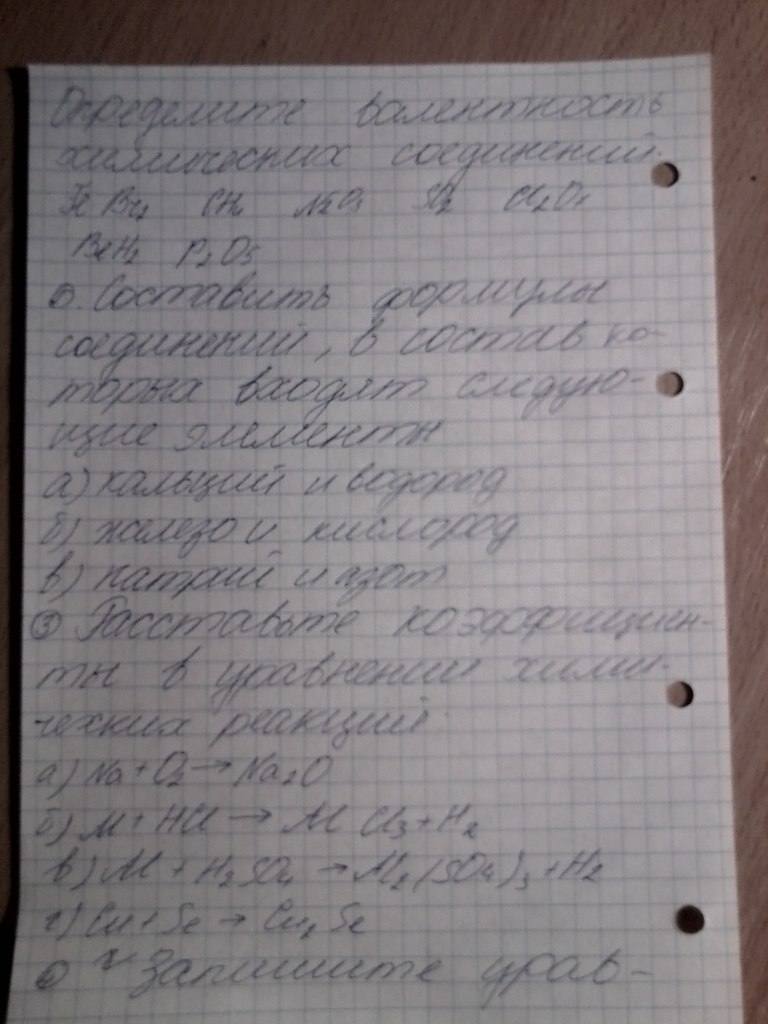 Определите валентность
химических соединений.
CH₄ Cl₂O₇
BeH₂ P₂O₅
Составить формулы
соединений, в состав ко-
торых входят следую-
щие элементы
а) кальций и водород
б) железо и кислород
в) натрий и азот
③ Расставьте коэффициен-
ты в уравнении хими-
ческих реакций.
а) Na + O₂ → Na₂O
б) Al + HCl → AlCl₃ + H₂
в) Al + H₂SO₄ → Al₂(SO₄)₃ + H₂
г) Cu + Se → Cu₂Se
Запишите урав-